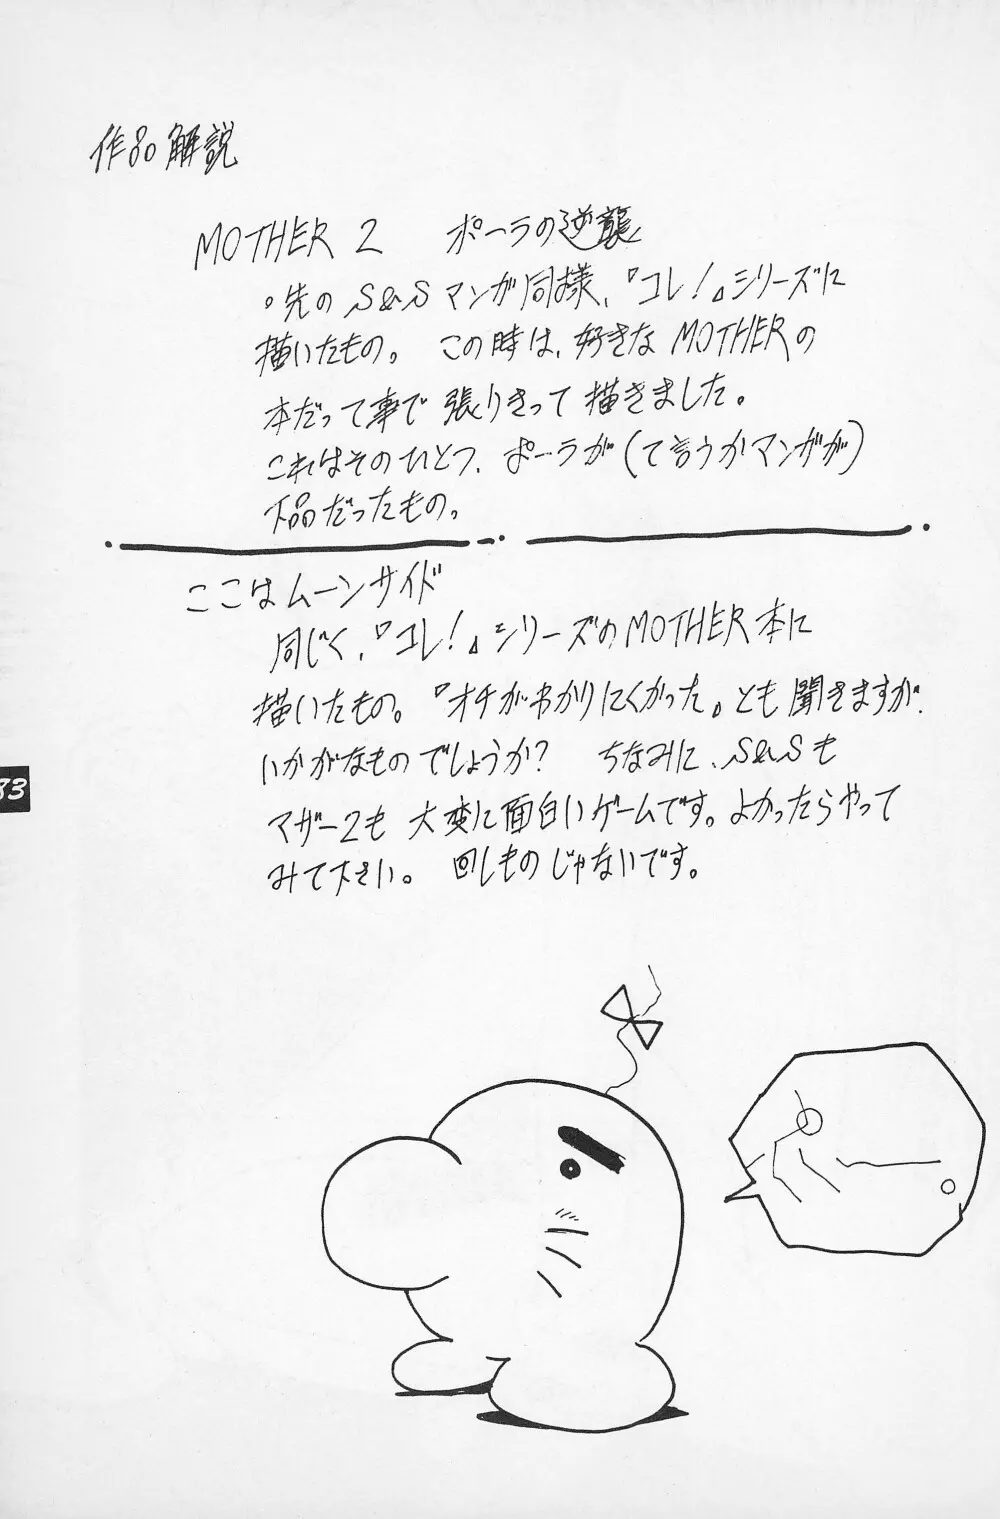 作品解説
MOTHER 2 ポーラの逆襲
・先の S&S マンガ同様、『コレ!』シリーズに
描いたもの。 この時は、好きな MOTHERの
本だって事で 張りきって 描きました。
これはそのひとつ、ポーラが(て言うかマンガが)
下品だったもの。
ここは ムーンサイド
同じく、『コレ!』シリーズのMOTHER本に
描いたもの。『オチがわかりにくかった』とも 聞きますが、
いかがなものでしょうか? ちなみに、S&Sも
マザー2も 大変に面白いゲームです。よかったらやって
みて下さい。 回しものじゃないです。
83